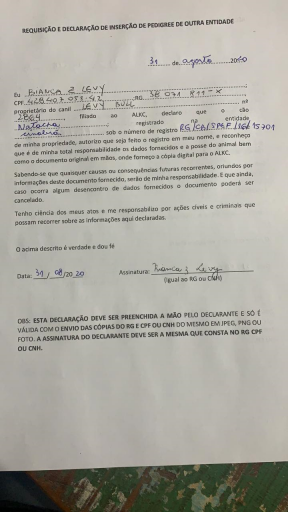 REQUISIÇÃO E DECLARAÇÃO DE INSERÇÃO DE PEDIGREE DE OUTRA ENTIDADE
31 de agosto 2020
Eu BIANCA Z LEVY
CPF RG
proprietário do canil LEVY BULL nº
2864 filiado ao ALKC, declaro que o cão
Natacha registrado na entidade
sob o número de registro
de minha propriedade, autorizo que seja feito o registro em meu nome, e reconheço
que é de minha total responsabilidade os dados fornecidos e a posse do animal bem
como o documento original em mãos, onde forneço a cópia digital para o ALKC.
Sabendo-se que quaisquer causas ou consequências futuras recorrentes, oriundos por
informações deste documento fornecido, serão de minha responsabilidade. E que ainda,
caso ocorra algum desencontro de dados fornecidos o documento poderá ser
cancelado.
Tenho ciência dos meus atos e me responsabilizo por ações cíveis e criminais que
possam recorrer sobre as informações aqui declaradas.
O acima descrito é verdade e dou fé
Data: 31/08/2020 Assinatura: Bianca Z Levy
(igual ao RG ou CNH)
OBS: ESTA DECLARAÇÃO DEVE SER PREENCHIDA A MÃO PELO DECLARANTE E SÓ É
VÁLIDA COM O ENVIO DAS CÓPIAS DO RG E CPF OU CNH DO MESMO EM JPEG, PNG OU
FOTO. A ASSINATURA DO DECLARANTE DEVE SER A MESMA QUE CONSTA NO RG CPF
OU CNH.